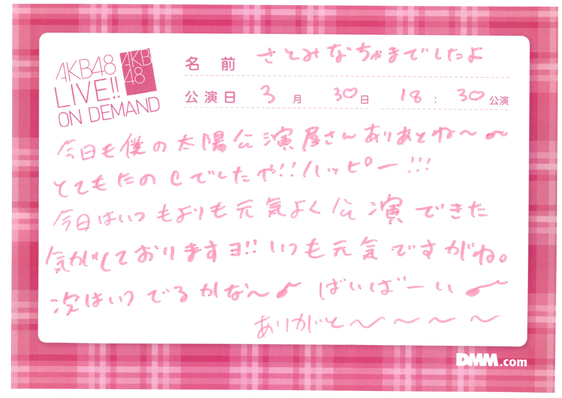 AKB48
LIVE!!
ON DEMAND
AKB
48
名 前 さとみなちゃまでしたよ
公演日 3 月 30 日 18 : 30 公演
今日も僕の太陽公演屋さんありあとね〜♪
とてもたのしでしたや!!ハッピー!!!
今日はいつもよりも元気よく公演できた
気がしておりますヨ!!いつも元気ですがね。
次はいつでるかな〜♪ ばいばーい♪
ありがと〜〜〜〜
DMM.com